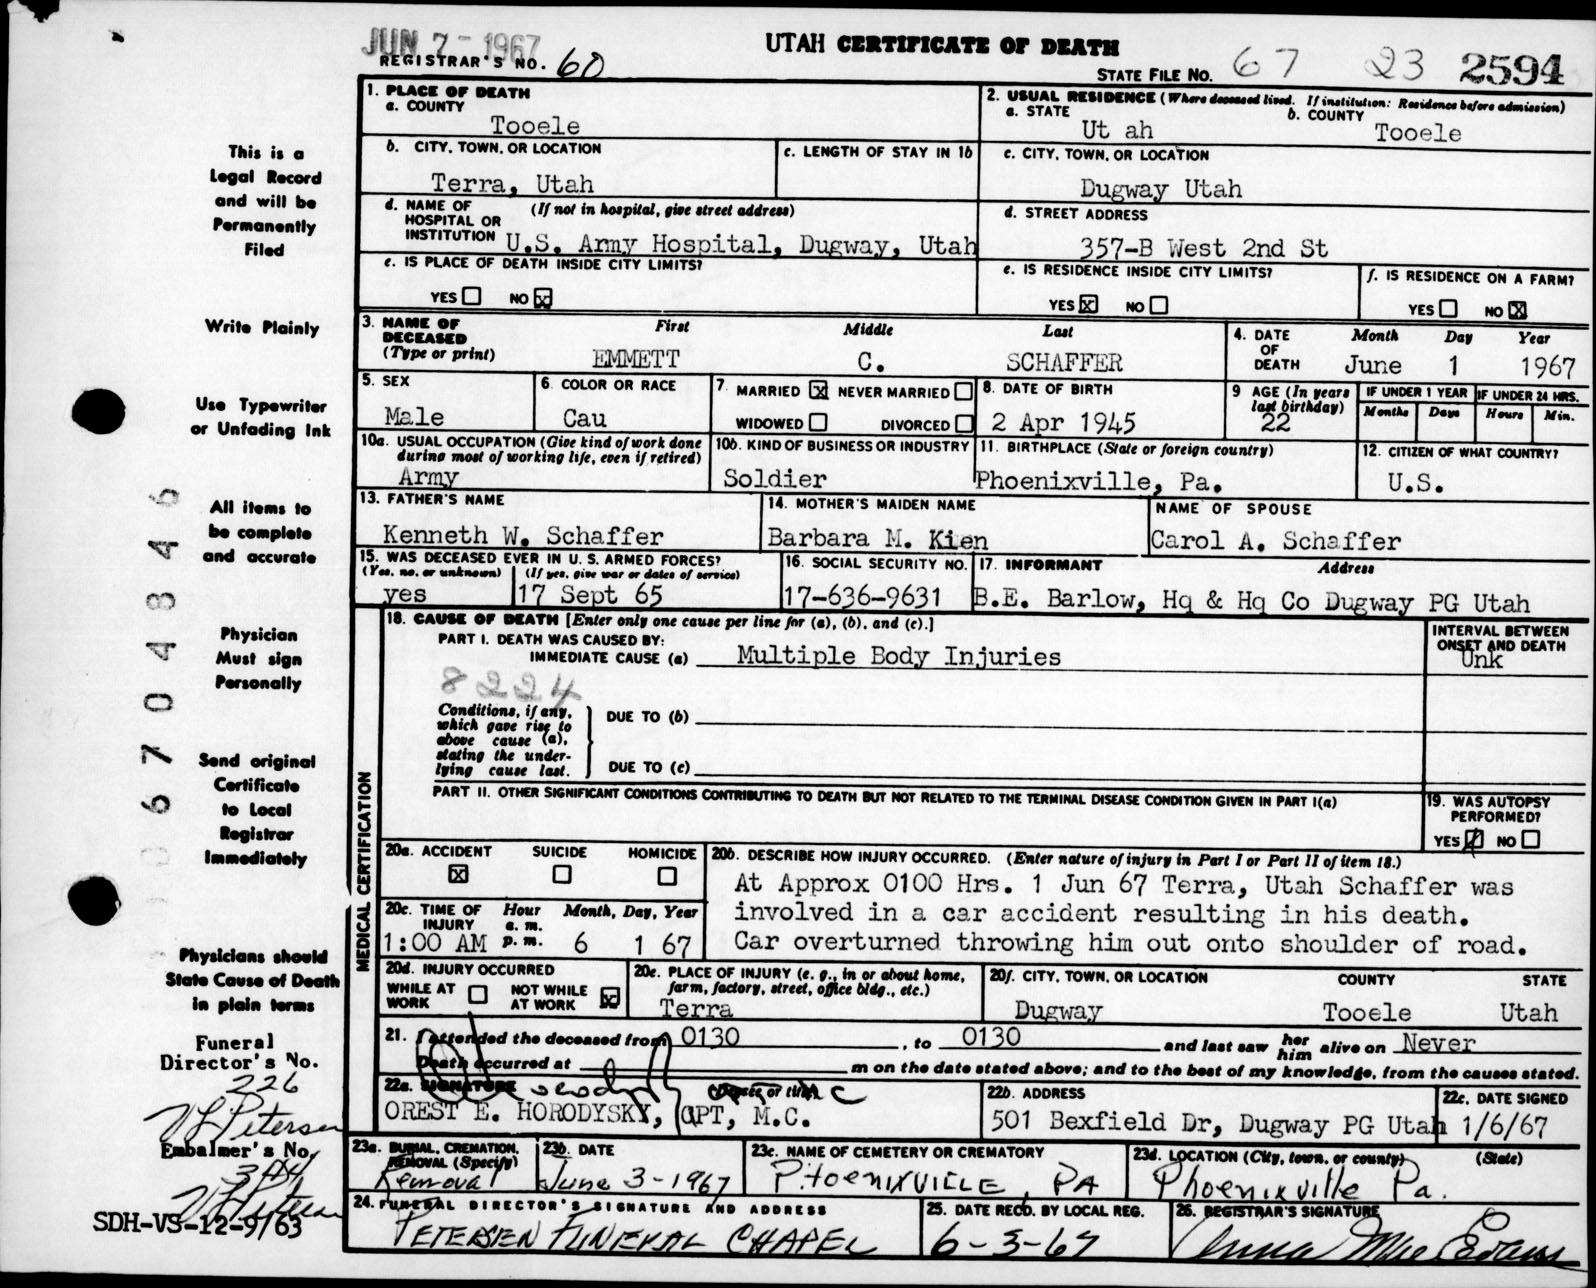 JUN 7 - 1967
UTAH CERTIFICATE OF DEATH
REGISTRAR'S NO. 60
STATE FILE NO. 67 23 2594
This is a
Legal Record
and will be
Permanently
Filed
Write Plainly
Use Typewriter
or Unfading Ink
All items to
be complete
and accurate
Physician
Must sign
Personally
Send original
Certificate
to Local
Registrar
Immediately
Physicians should
State Cause of Death
in plain terms
Funeral
Director's No.
226
V L Petersen
Embalmer's No.
SDH-VS-12-9/63
0 6 7 0 4 8 4 6
1. PLACE OF DEATH
a. COUNTY
Tooele
2. USUAL RESIDENCE (Where deceased lived. If institution: Residence before admission)
a. STATE b. COUNTY
Ut ah Tooele
b. CITY, TOWN, OR LOCATION
Terra, Utah
c. LENGTH OF STAY IN 1b
c. CITY, TOWN, OR LOCATION
Dugway Utah
d. NAME OF (If not in hospital, give street address)
HOSPITAL OR
INSTITUTION U.S. Army Hospital, Dugway, Utah
d. STREET ADDRESS
357-B West 2nd St
e. IS PLACE OF DEATH INSIDE CITY LIMITS?
YES NO x
e. IS RESIDENCE INSIDE CITY LIMITS?
YES x NO
f. IS RESIDENCE ON A FARM?
YES NO x
3. NAME OF First Middle Last
DECEASED
(Type or print) EMMETT C. SCHAFFER
4. DATE Month Day Year
OF
DEATH June 1 1967
5. SEX
Male
6. COLOR OR RACE
Cau
7. MARRIED x NEVER MARRIED
WIDOWED DIVORCED
8. DATE OF BIRTH
2 Apr 1945
9 AGE (In years
last birthday)
22
IF UNDER 1 YEAR IF UNDER 24 HRS.
Months Days Hours Min.
10a. USUAL OCCUPATION (Give kind of work done
during most of working life, even if retired)
Army
10b. KIND OF BUSINESS OR INDUSTRY
Soldier
11. BIRTHPLACE (State or foreign country)
Phoenixville, Pa.
12. CITIZEN OF WHAT COUNTRY?
U.S.
13. FATHER'S NAME
Kenneth W. Schaffer
14. MOTHER'S MAIDEN NAME
Barbara M. Kien
NAME OF SPOUSE
Carol A. Schaffer
15. WAS DECEASED EVER IN U. S. ARMED FORCES?
(Yes, no, or unknown) (If yes, give war or dates of service)
yes 17 Sept 65
16. SOCIAL SECURITY NO.
17-636-9631
17. INFORMANT Address
B.E. Barlow, Hq & Hq Co Dugway PG Utah
MEDICAL CERTIFICATION
18. CAUSE OF DEATH [Enter only one cause per line for (a), (b), and (c).]
PART I. DEATH WAS CAUSED BY:
IMMEDIATE CAUSE (a) Multiple Body Injuries
INTERVAL BETWEEN
ONSET AND DEATH
Unk
8224
Conditions, if any,
which gave rise to
above cause (a),
stating the under-
lying cause last.
DUE TO (b)
DUE TO (c)
PART II. OTHER SIGNIFICANT CONDITIONS CONTRIBUTING TO DEATH BUT NOT RELATED TO THE TERMINAL DISEASE CONDITION GIVEN IN PART I(a)
19. WAS AUTOPSY
PERFORMED?
YES NO
20a. ACCIDENT SUICIDE HOMICIDE
x
20b. DESCRIBE HOW INJURY OCCURRED. (Enter nature of injury in Part I or Part II of item 18.)
At Approx 0100 Hrs. 1 Jun 67 Terra, Utah Schaffer was
involved in a car accident resulting in his death.
Car overturned throwing him out onto shoulder of road.
20c. TIME OF Hour Month, Day, Year
INJURY a. m.
1:00 AM p. m. 6 1 67
20d. INJURY OCCURRED
WHILE AT NOT WHILE
WORK AT WORK x
20e. PLACE OF INJURY (e. g., in or about home,
farm, factory, street, office bldg., etc.)
Terra
20f. CITY, TOWN, OR LOCATION COUNTY STATE
Dugway Tooele Utah
21. I attended the deceased from 0130, to 0130 and last saw her him alive on Never
Death occurred at m on the date stated above; and to the best of my knowledge, from the causes stated.
22a. SIGNATURE (Degree or title)
OREST E. HORODYSKY, CPT, M.C.
22b. ADDRESS
501 Bexfield Dr, Dugway PG Utah
22c. DATE SIGNED
1/6/67
23a. BURIAL, CREMATION,
REMOVAL (Specify)
Removal
23b. DATE
June 3-1967
23c. NAME OF CEMETERY OR CREMATORY
PHOENIXVILLE, PA
23d. LOCATION (City, town, or county) (State)
Phoenixville Pa.
24. FUNERAL DIRECTOR'S SIGNATURE AND ADDRESS
PETERSEN FUNERAL CHAPEL
25. DATE RECD. BY LOCAL REG.
6-3-67
26. REGISTRAR'S SIGNATURE
Anna Mae Evans